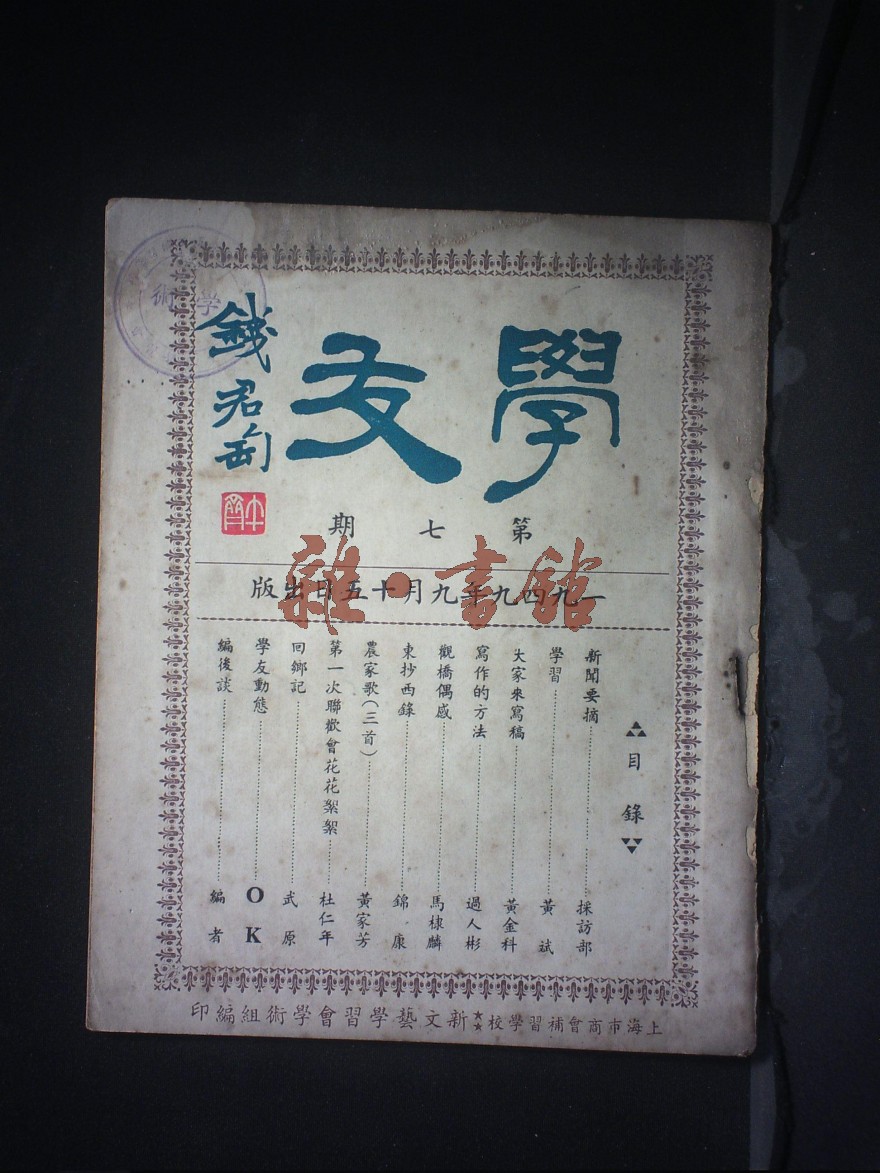 學友
錢君匋
第七期
一九四九年九月十五日出版
雜·書館
目錄
新聞要摘 採訪部
學習 黃斌
大家來寫稿 黃金科
寫作的方法 過人彬
觀橋偶感 馬棣麟
東抄西錄 錦康
農家歌(三首) 黃家芳
第一次聯歡會花花絮絮 杜仁年
回鄉記 武原
學友動態 OK
編後談 編者
上海市商會補習學校 新文藝學習會學術組編印
学術